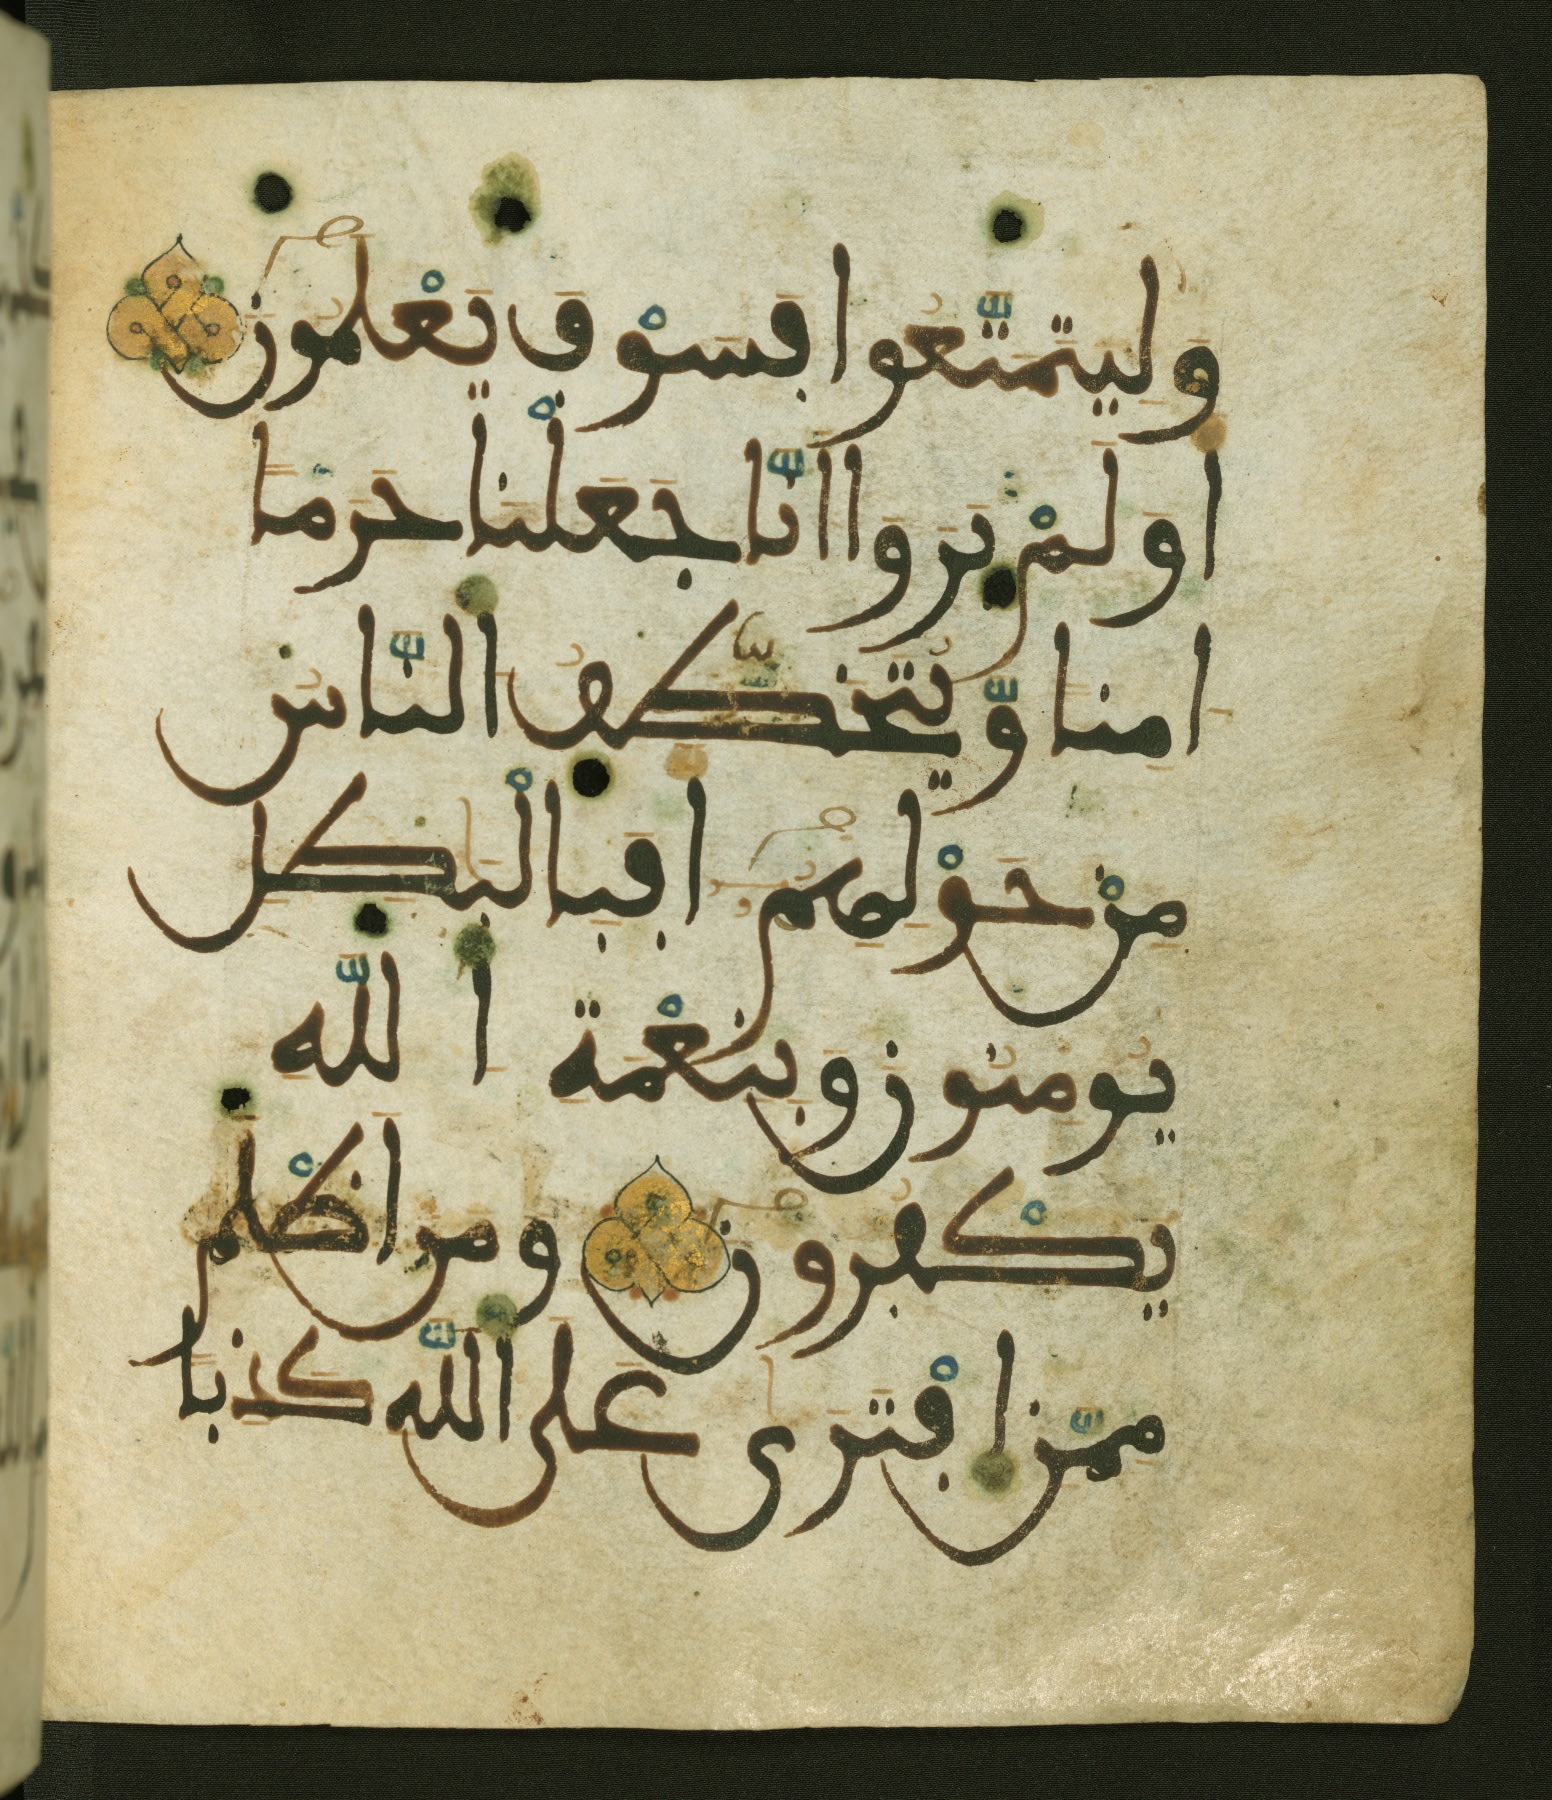 وَلِيَتَمَتَّعُوا فَسَوْفَ يَعْلَمُونَ
اَوَلَمْ يَرَوَا اَنَّا جَعَلْنَا حَرَمًا
اٰمِنًا وَّيُتَخَطَّفُ النَّاسُ
مِنْ حَوْلِهِمُۥ اَفَبِالْبَٰطِلِ
يُومِنُونَ وَبِنِعْمَةِ اِ۬للَّهِ
يَكْفُرُونَ وَمَنَ اَظْلَمُ
مِمَّنِ اِ۪فْتَرَىٰ عَلَى اَ۬للَّهِ كَذِبًا